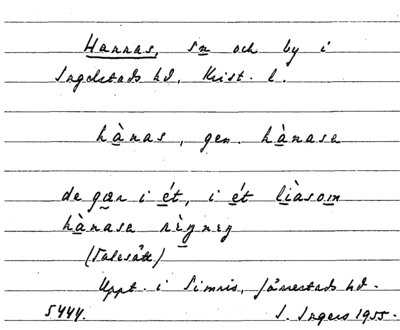 Hannas, sn och by i
Ingelstads hd, Krist. l.
hànas, gen. hànasa
de gær i ét, i ét lìasom
hànasa règneg
(Talesätt)
Uppt. i Simris, Järrestads hd.
5444. I. Ingers 1955.